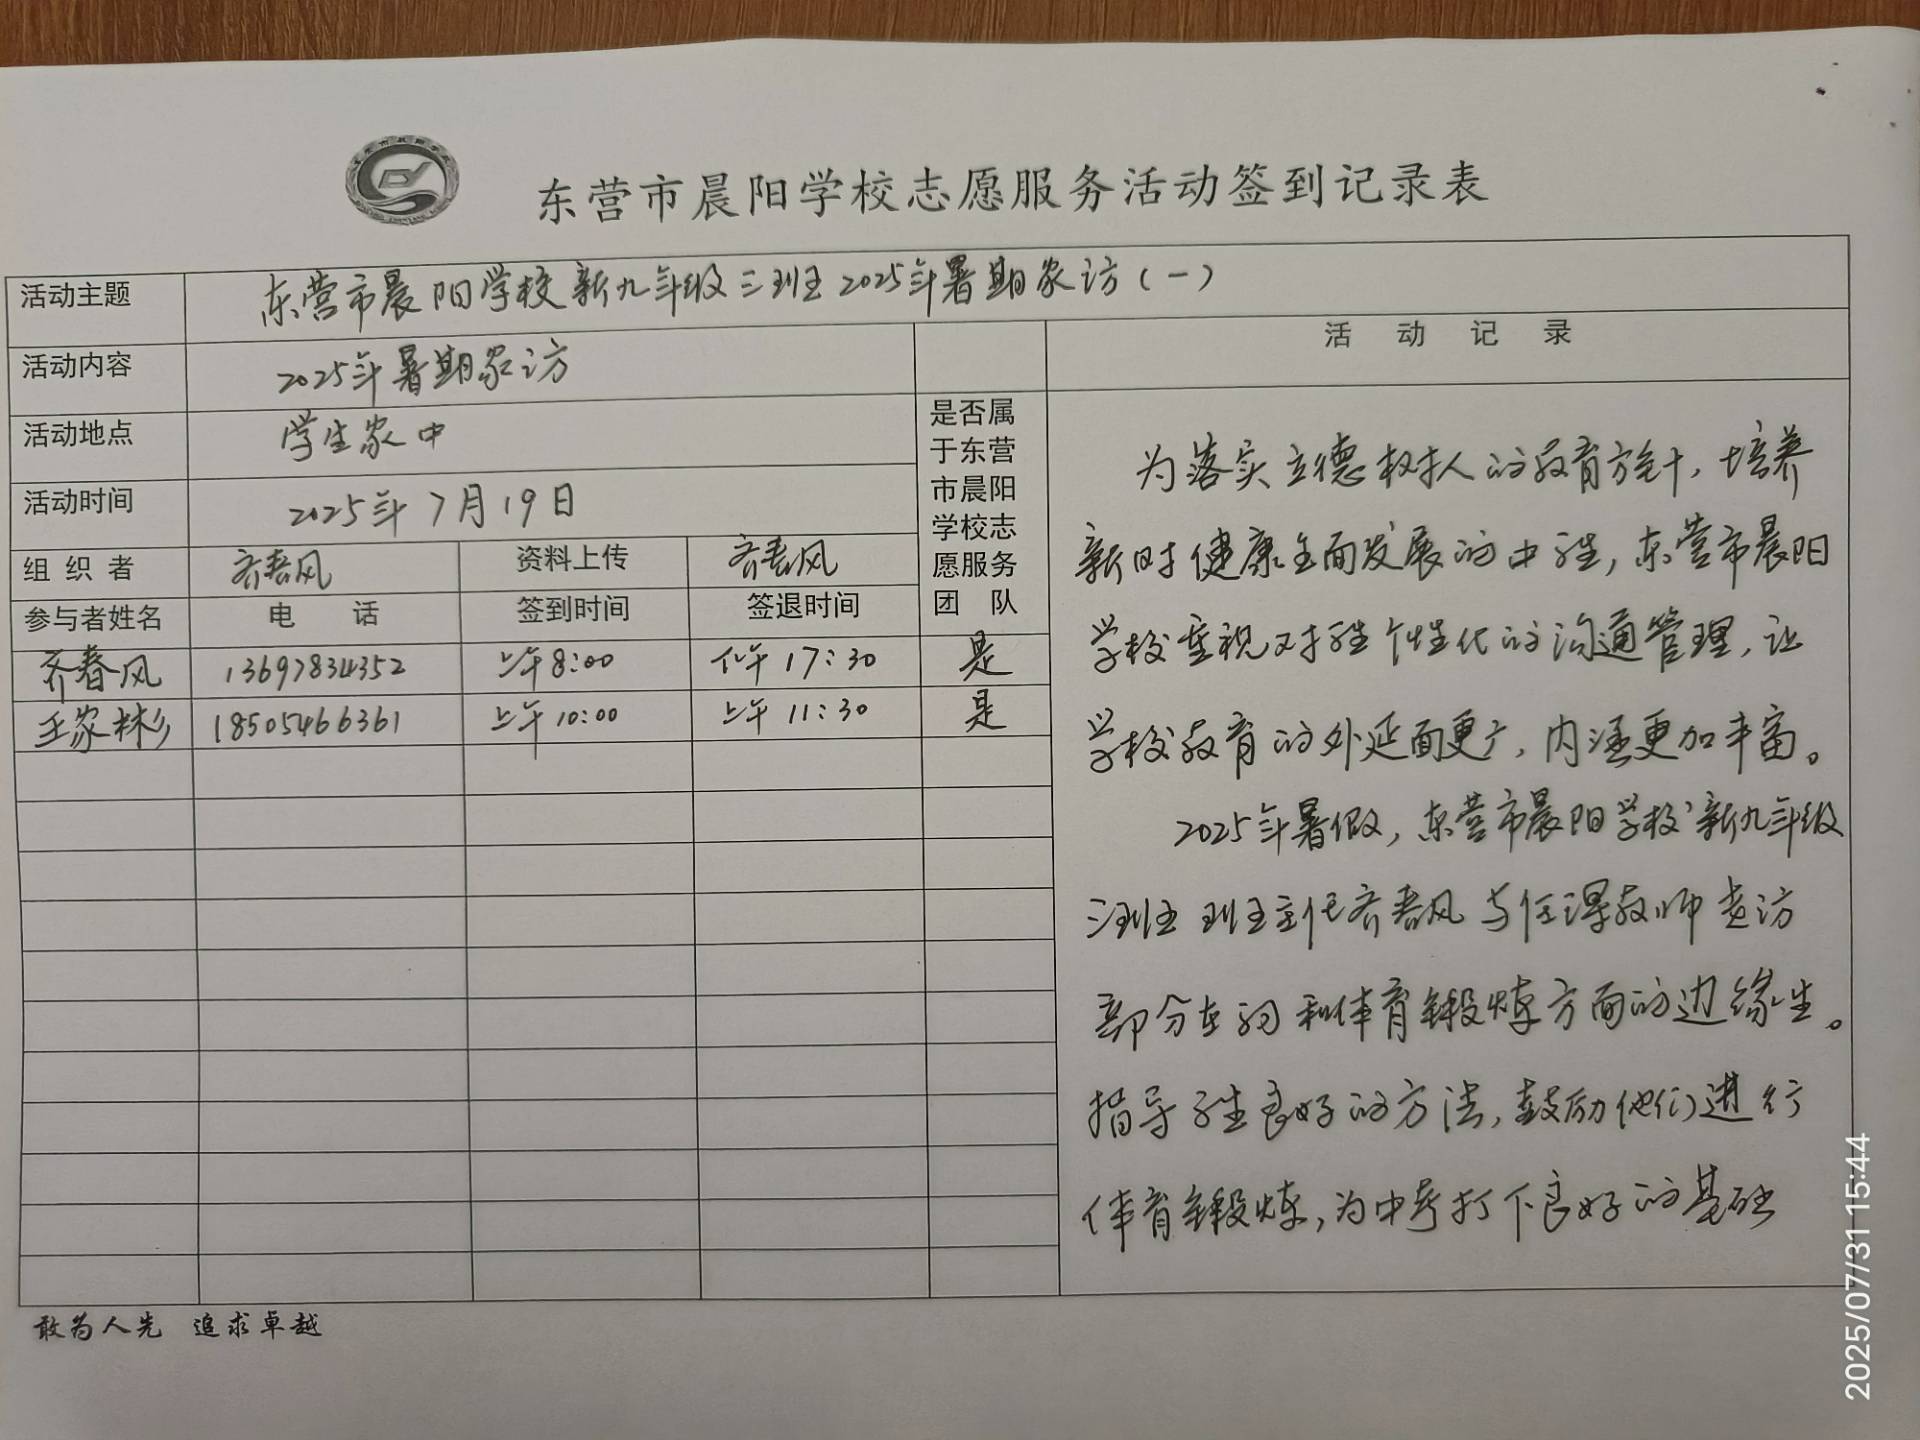 东营市晨阳学校志愿服务活动签到记录表
活动主题 东营市晨阳学校新九年级三班2025年暑期家访(一)
活动内容 2025年暑期家访
活动地点 学生家中
活动时间 2025年7月19日
组织者 齐春风 资料上传 齐春风
是否属于东营市晨阳学校志愿服务团队
参与者姓名 电话 签到时间 签退时间
齐春风 13697834352 上午8:00 下午17:30 是
王家彬 18505466361 上午10:00 上午11:30 是
活动记录
为落实立德树人的教育方针,培养
新时健康全面发展的中学生,东营市晨阳
学校重视对学生个性化的沟通管理,让
学校教育的外延面更广,内涵更加丰富。
2025年暑假,东营市晨阳学校新九年级
三班班主任齐春风与任课教师走访
部分在和体育锻炼方面的边缘生。
指导学生良好的方法,鼓励他们进行
体育锻炼,为中考打下良好的基础
敢为人先 追求卓越
2025/07/31 15:44